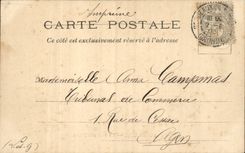 Imprimé
CARTE POSTALE
Ce côté est exclusivement réservé à l'adresse
Mademoiselle Anna Campmas
Tribunal de Commerce
1 Rue de Cessac
Agen